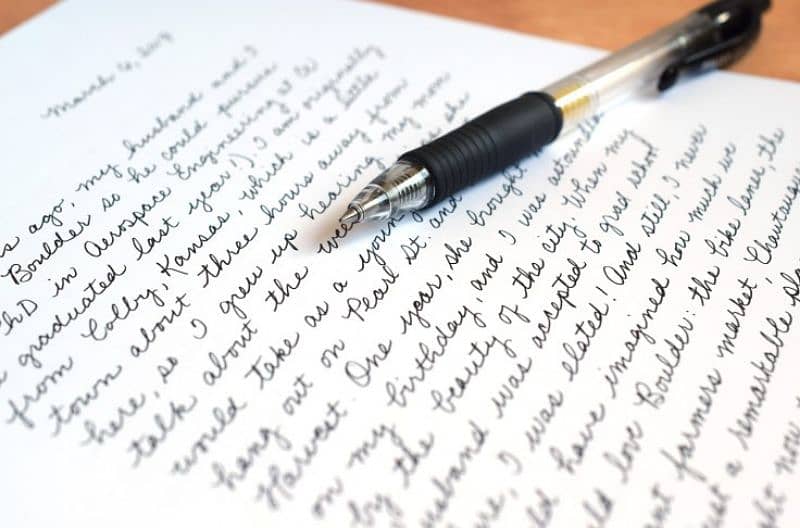 March 6, 2019
ago, my husband and I
Boulder so he could pursue
PhD in Aerospace Engineering at CU
graduated last year!). I am originally
from Colby, Kansas, which is a little
town about three hours away from
here, so I grew up hearing my mom
talk about the she
would take as a young and
hang out on Pearl St. and
Harvest. One year, she brought
on my birthday, and I was astounded
by the beauty of the city. When my
husband was accepted to grad school
I was elated! And still, I never
have imagined how much we
love Boulder: the bike lanes, the
farmers market, Chautauqua
a remarkable
now